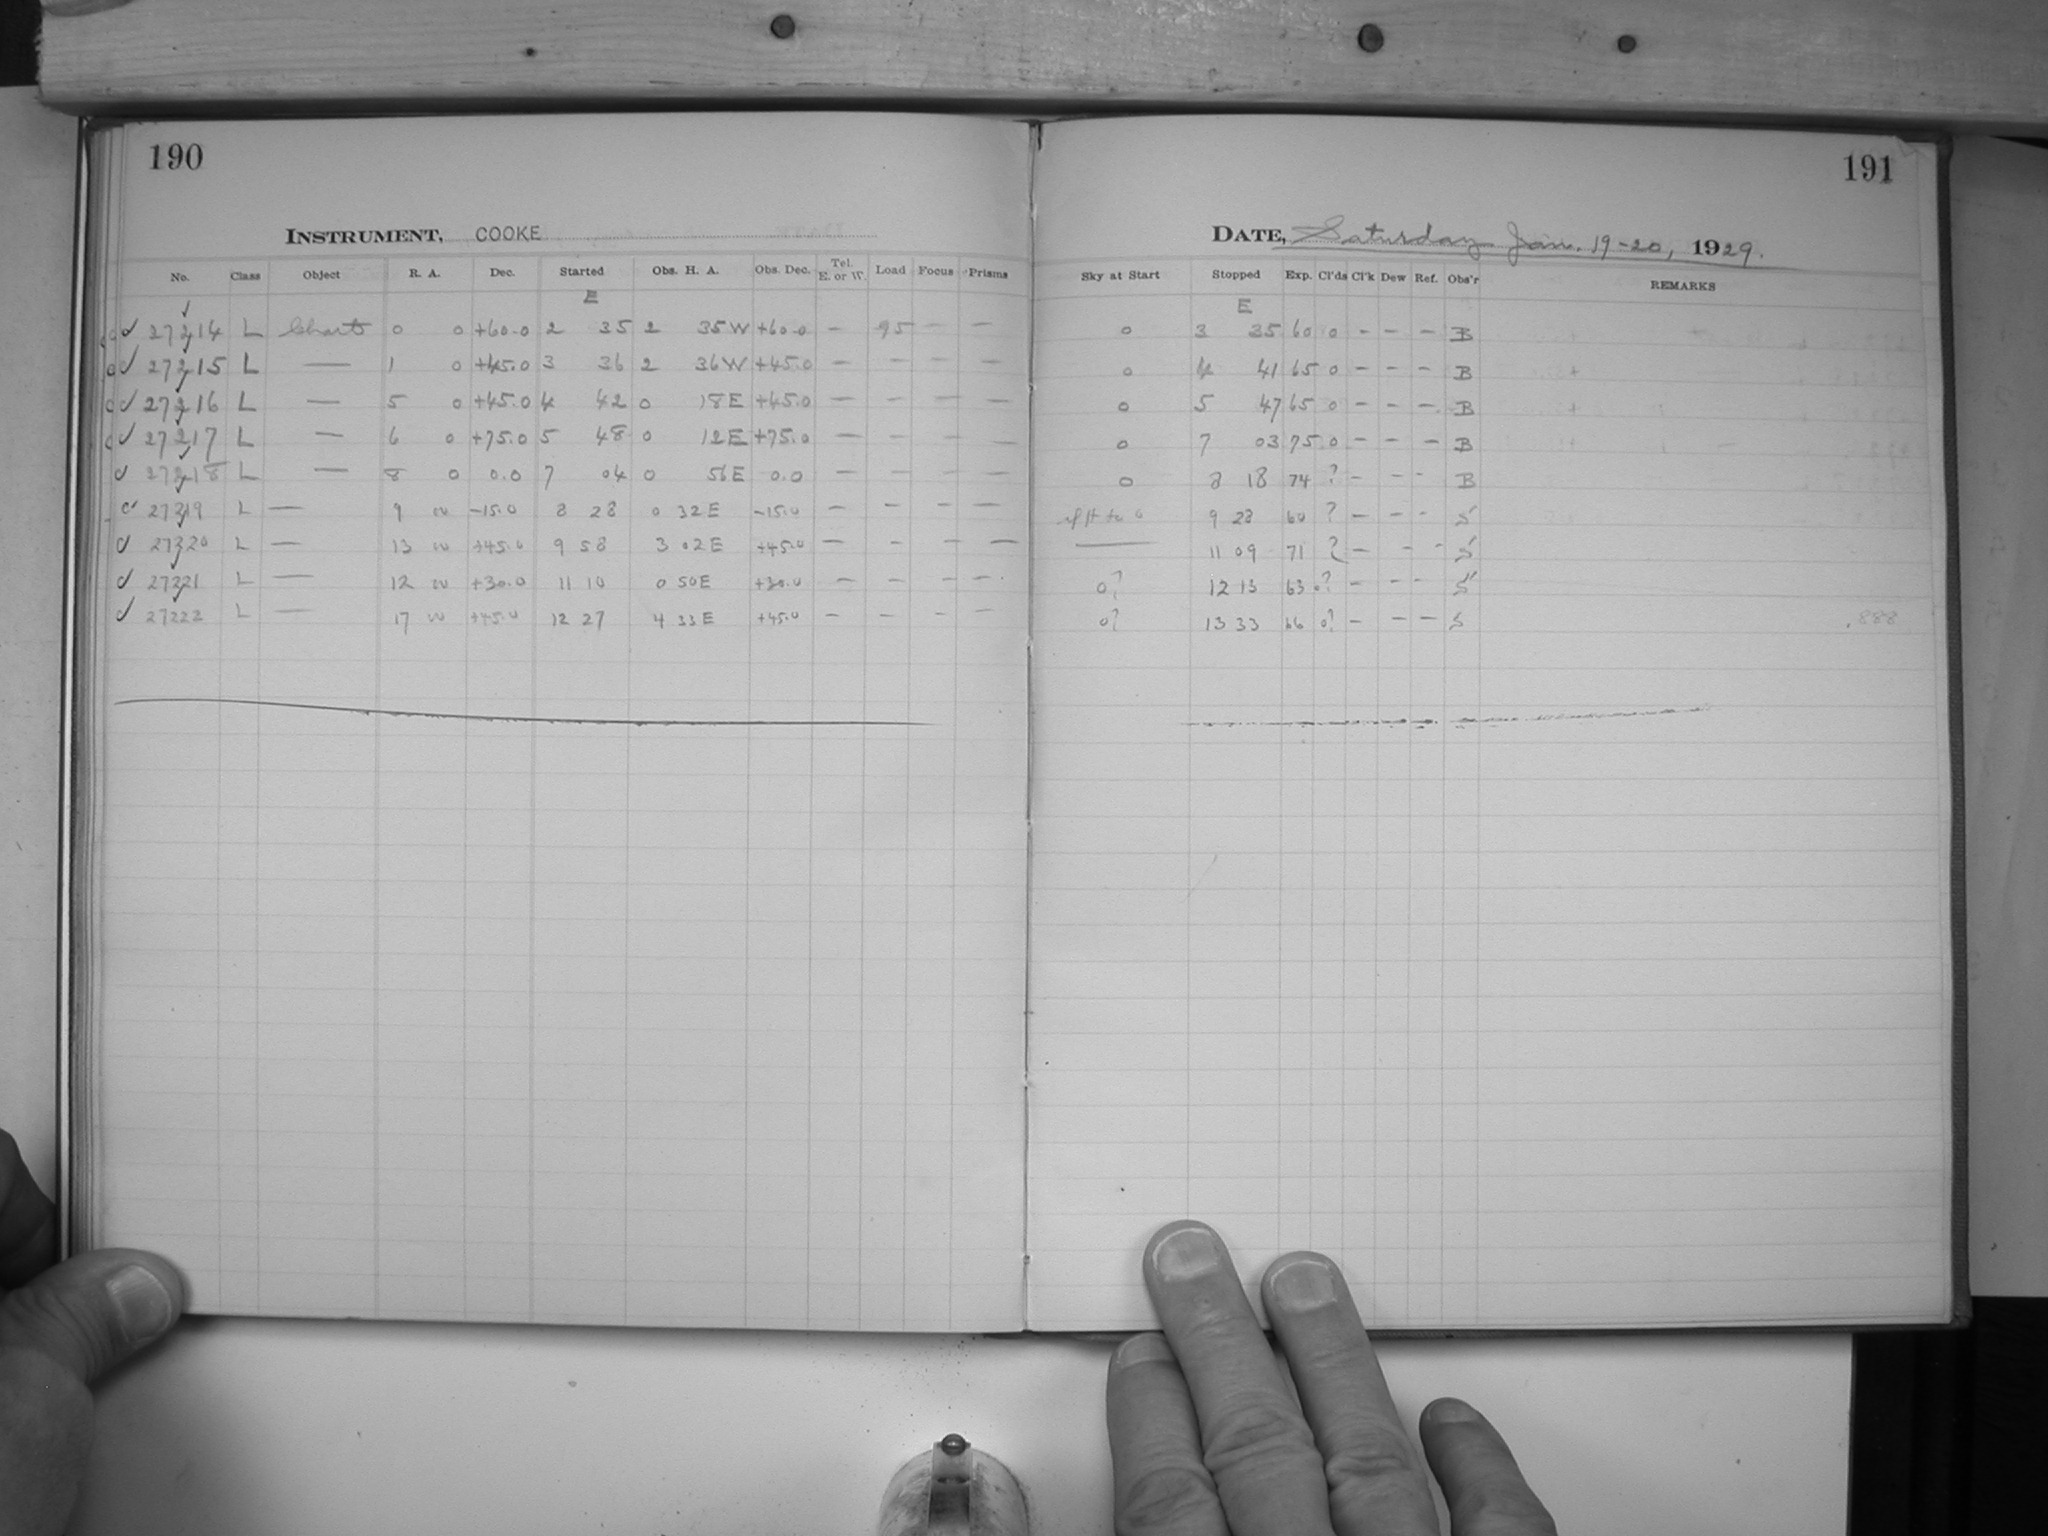 190
INSTRUMENT, COOKE
No. Class Object R. A. Dec. Started Obs. H. A. Obs. Dec. Tel. E. or W. Load Focus Prisms
E
27214 L Charts 0 0 +60.0 2 35 2 35 W +60.0 — 95 — —
27215 L — 1 0 +45.0 3 36 2 36 W +45.0 — — — —
27216 L — 5 0 +45.0 4 42 0 18 E +45.0 — — — —
27217 L — 6 0 +75.0 5 48 0 12 E +75.0 — — — —
27218 L — 8 0 0.0 7 04 0 56 E 0.0 — — — —
27219 L — 9 00 -15.0 8 28 0 32 E -15.0 — — — —
27220 L — 13 00 +45.0 9 58 3 02 E +45.0 — — — —
27221 L — 12 00 +30.0 11 10 0 50 E +30.0 — — — —
27222 L — 17 00 +45.0 12 27 4 33 E +45.0 — — — —
191
DATE, Saturday Jan. 19-20, 1929.
Sky at Start Stopped Exp. Cl'ds Cl'k Dew Ref. Obs'r REMARKS
E
0 3 35 60 0 — — — B
0 4 41 65 0 — — — B
0 5 47 65 0 — — — B
0 7 03 75 0 — — — B
0 8 18 74 ? — — — B
9 28 60 ? — — — S
— 11 09 71 ? — — — S
0? 12 13 63 0? — — — S
0? 13 33 66 0? — — — S .888